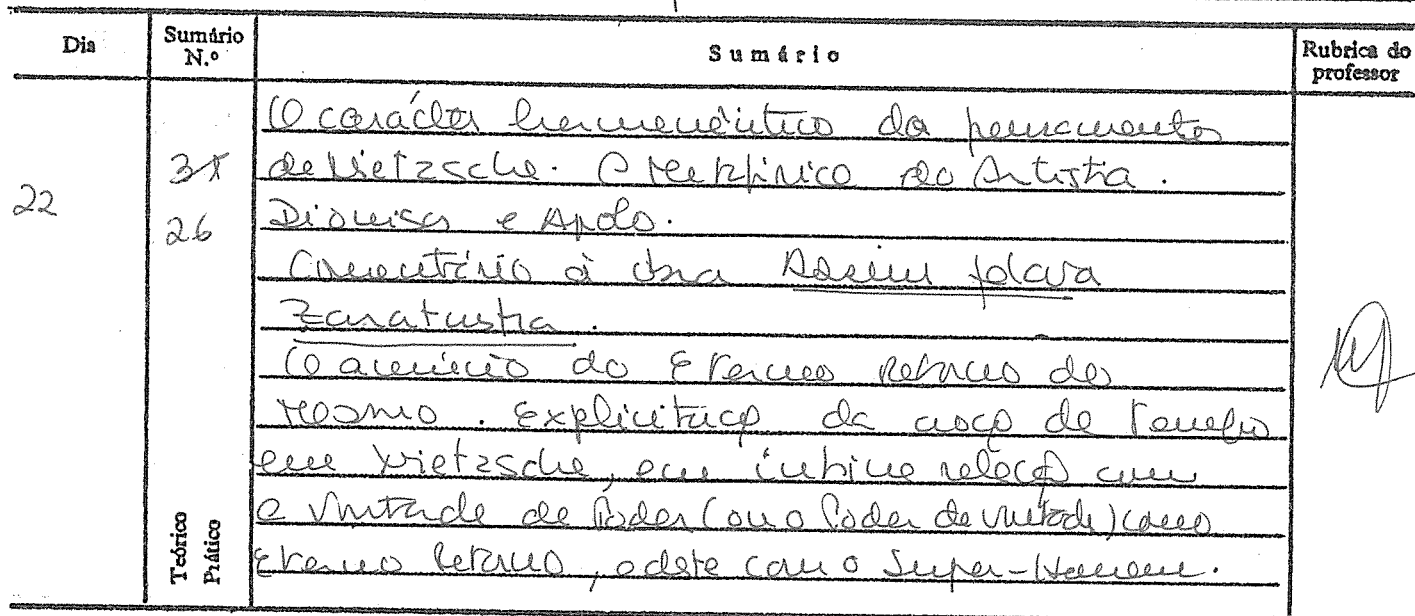 Dia
Sumário N.º
Sumário
Rubrica do professor
22
26
Teórico
Prático
O carácter hermenêutico do pensamento
de Nietzsche. O do Artista.
Dioniso e Apolo.
Comentário à obra Assim falava
Zaratustra.
O anúncio do Eterno Retorno do
Mesmo. Explicitação da noção de Tempo
em Nietzsche, em íntima relação com
a Vontade de Poder (ou o Poder da vontade) como
Eterno Retorno, e deste com o Super-Homem.